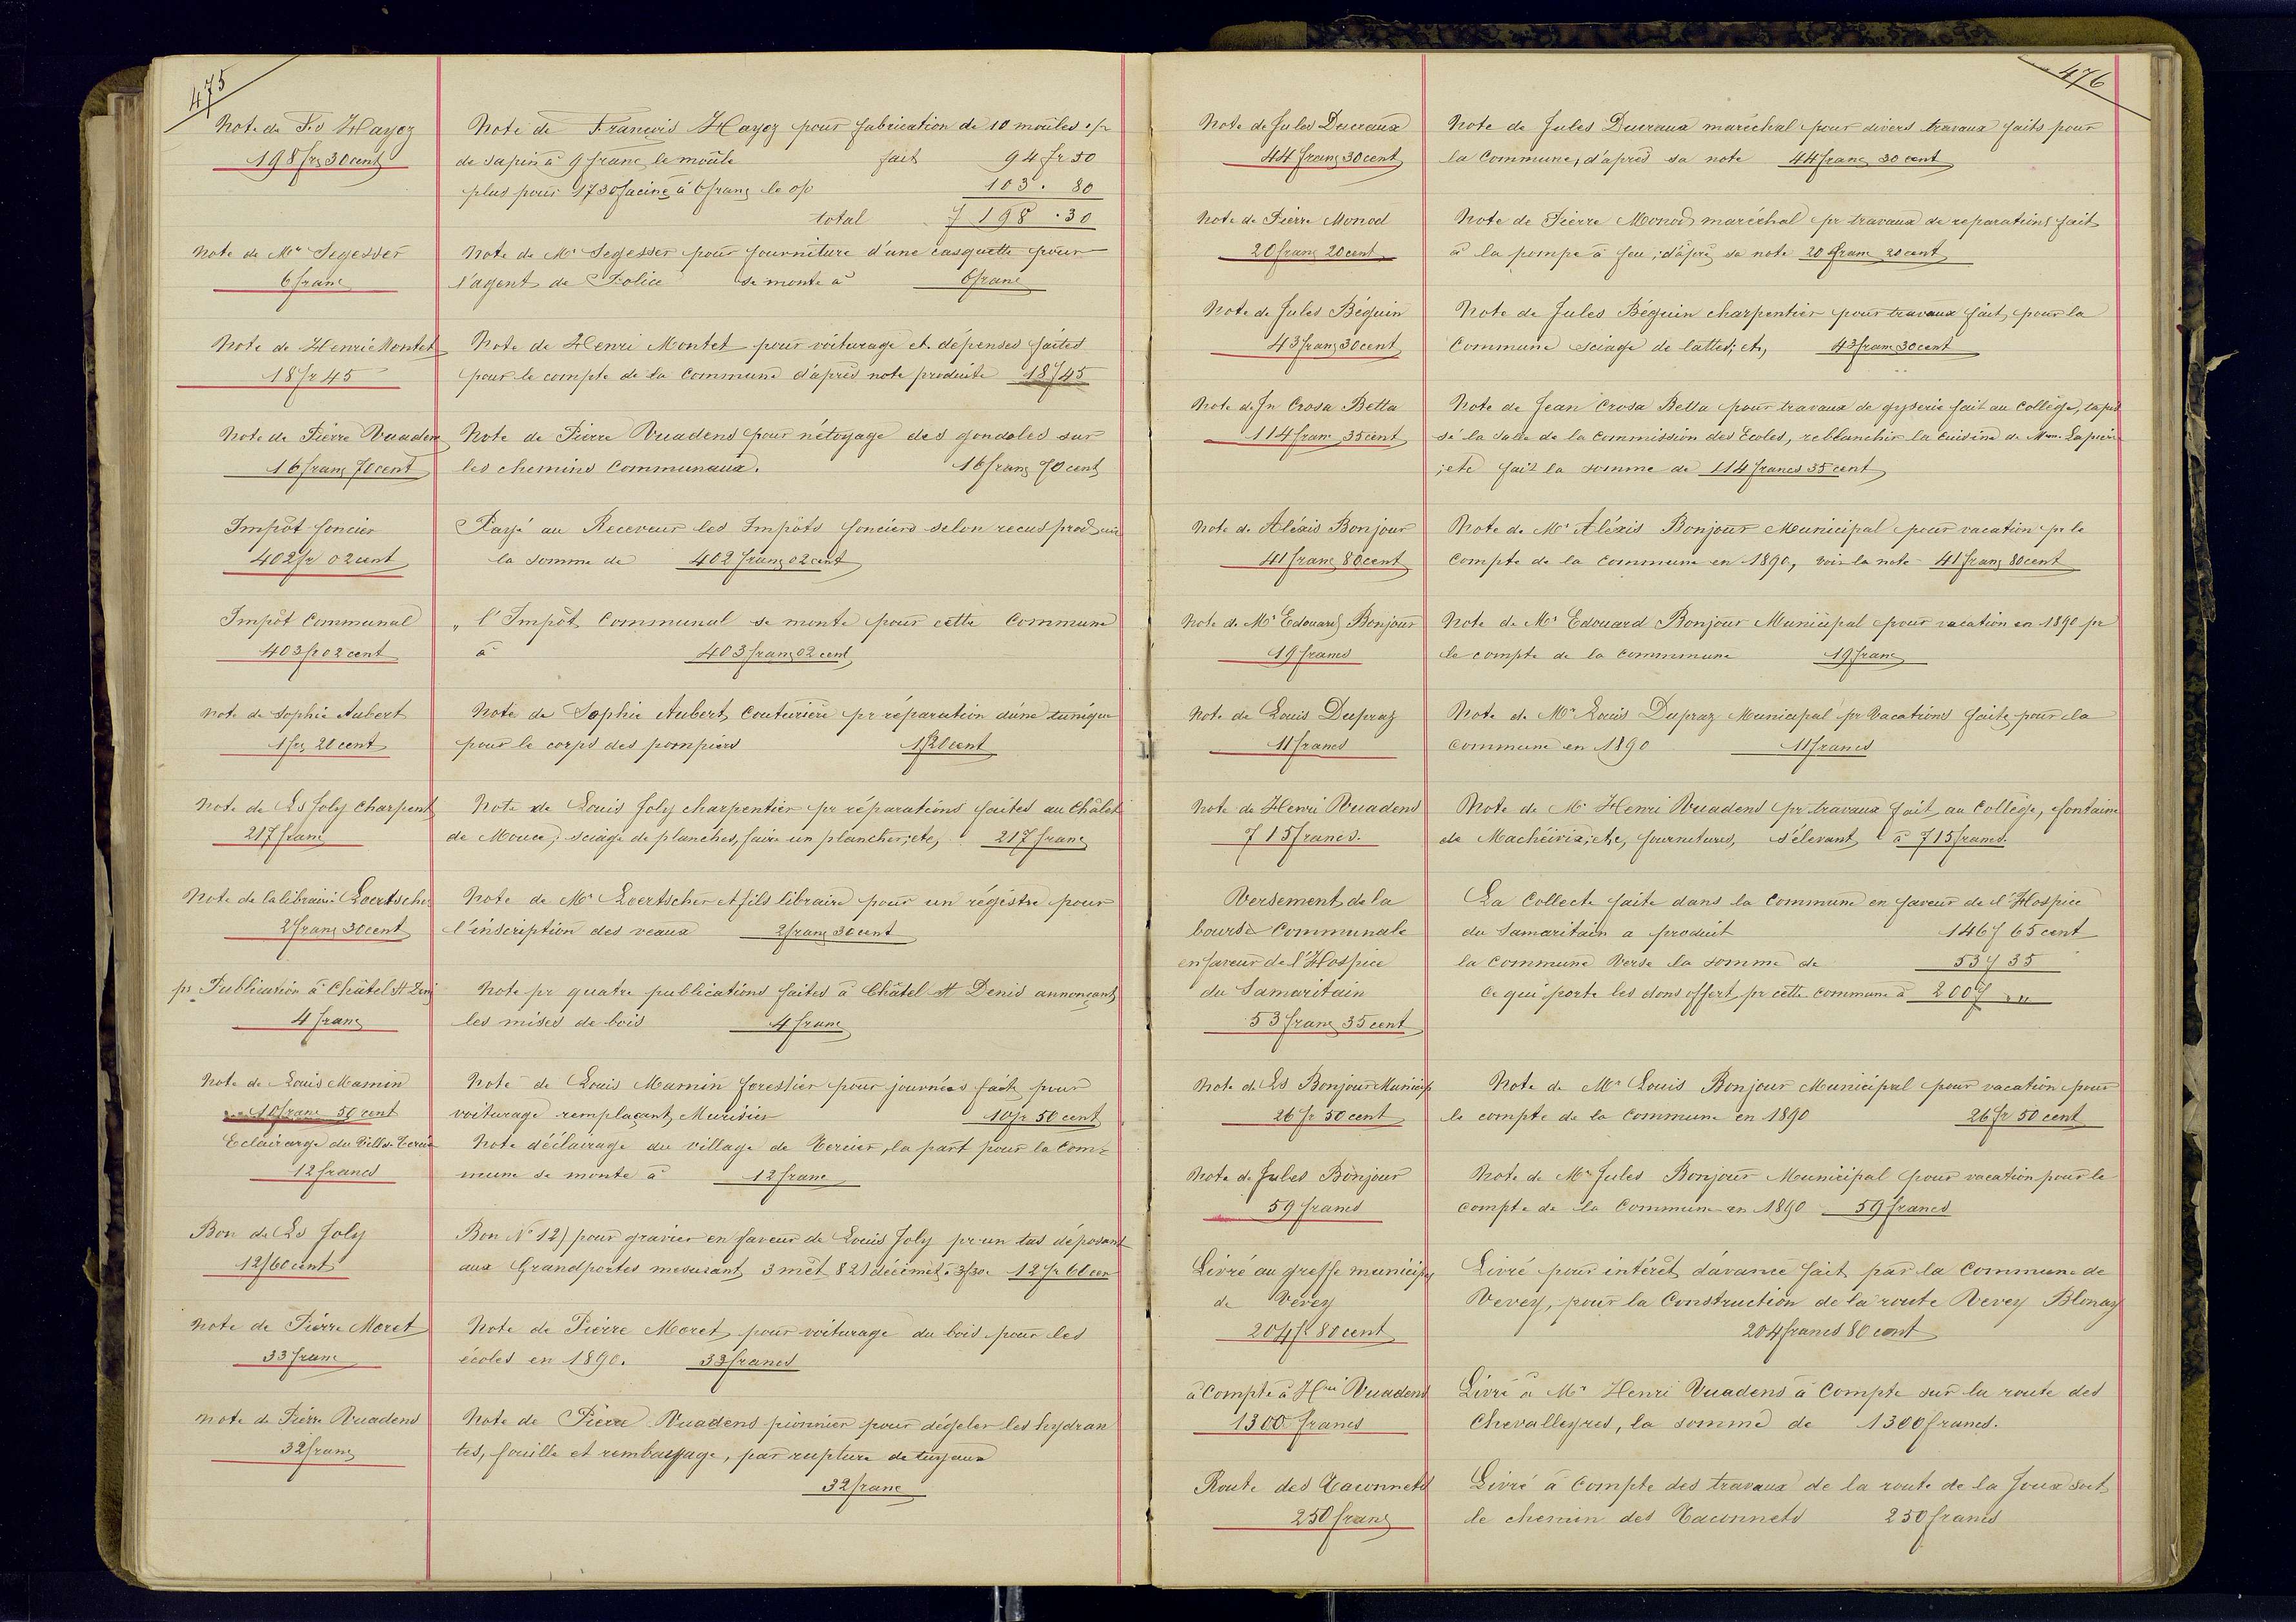 475
Note de Fs Hayoz
198 frs 30 cent
Note de Francois Hayoz pour fabrication de 10 moules 1/2
de sapin à 9 franc le moule fait 94 fr 50
plus pour 1730 facine à 6 franc le o/o 103. 80
total f 198 . 30
Note de Mr Segesser
6 franc
Note de Mr Segesser pour fourniture d'une casquette pour
l'agent de Police se monte à 6 franc
Note de Henri Montet
18 fr 45
Note de Henri Montet pour voiturage et dépenses faites
pour le compte de la Commune d'après note produite 18 f 45
Note de Pierre Vuadens
16 franc 70 cent
Note de Pierre Vuadens pour nétoyage des gondoles sur
les chemins Communaux. 16 franc 70 cent
Impôt foncier
402 fr 02 cent
Payé au Receveur les Impôts fonciers selon recus produis
la somme de 402 franc 02 cent
Impôt Communal
403 fr 02 cent
" l'Impôt Communal se monte pour cette Commune
à 403 franc 02 cent
Note de Sophie Aubert
1 fr 20 cent
Note de Sophie Aubert, Couturière pr réparation d'une tunique
pour le corps des pompiers 1 f 20 cent
Note de Ls Joly Charpent
217 franc
Note de Louis Joly charpentier pr réparations faites au Châlet
de Mouce; sciage de planches, faire un plancher; etc, 217 franc
Note de la librairie Loertscher
2 franc 30 cent
Note de Mr Loertscher et fils libraire pour un régistre pour
l'inscription des veaux 2 franc 30 cent
pr Publication à Châtel St Denis
4 franc
Note pr quatre publications faites à Châtel St Denis annonçant
les mises de bois 4 franc
Note de Louis Mamin
10 franc 50 cent
Note de Louis Mamin forestier pour journées fait pour
voiturage remplaçant Meurisier 10 fr 50 cent
Eclairage du Vill de Tercier
12 francs
Note déclairage du village de Tercier, la part pour la Com-
mune se monte à 12 franc
Bon de Ls Joly
12 f 60 cent
Bon No 12) pour gravier en faveur de Louis Joly pr un tas déposant
aux Grandportes mesurant 3 mèt 821 décimèt à 3 f 30. 12 fr 60 cen
Note de Pierre Moret
33 franc
Note de Pierre Moret, pour voiturage du bois pour les
écoles en 1890. 33 francs
Note de Pierre Vuadens
32 franc
Note de Pierre Vuadens pionnier pour dégeler les hydran
tes, fouille et remblayage, par rupture de tuyaux
32 franc
476
Note de Jules Ducraux
44 franc 30 cent
Note de Jules Ducraux maréchal pour divers travaux faits pour
la Commune, d'après sa note 44 franc 30 cent
Note de Pierre Monod
20 franc 20 cent
Note de Pierre Monod maréchal pr travaux de reparations fait
à la pompe à feu; d'après sa note 20 franc 20 cent
Note de Jules Béguin
43 franc 30 cent
Note de Jules Béguin charpentier pour travaux fait pour la
Commune sciage de lattes; etc, 43 franc 30 cent
Note de Jn Crosa Betta
114 franc 35 cent
Note de Jean Crosa Betta pour travaux de gypserie fait au Collège, tapis
sé la salle de la Commission des Ecoles, reblanchir la Cuisine de Mme Lapierre
; etc fait la somme de 114 francs 35 cent
Note de Aléxis Bonjour
41 franc 80 cent
Note de Mr Aléxis Bonjour Municipal pour vacation pr le
Compte de la Commune en 1890, voir la note 41 franc 80 cent
Note de Mr Edouard Bonjour
19 francs
Note de Mr Edouard Bonjour Municipal pour vacation en 1890 pr
le compte de la Commmune 19 franc
Note de Louis Dupraz
11 francs
Note de Mr Louis Dupraz Municipal pr Vacations faite pour la
Commune en 1890 11 francs
Note de Henri Vuadens
715 francs.
Note de Mr Henri Vuadens pr travaux fait au Collège, fontaine
de Machéirix; etc, fournitures, s'élevant à 715 francs.
Versement de la
bourse Communale
en faveur de l'Hospice
du Samaritain
53 franc 35 cent
La Collecte faite dans la Commune en faveur de l'Hospice
du Samaritain a produit 146 f 65 cent
la Commune Verse la somme de 53 f 35
Ce qui porte les dons offert pr cette Commune à 200 f "
Note de Ls Bonjour Municip
26 fr 50 cent
Note de Mr Louis Bonjour Municipal pour vacation pour
le compte de la Commune en 1890 26 fr 50 cent
Note de Jules Bonjour
59 francs
Note de Mr Jules Bonjour Municipal pour vacation pour le
compte de la Commune en 1890 59 francs
Livré au greffe municip
de Vevey
204 fr 80 cent
Livré pour intérêt d'avance fait par la Commune de
Vevey, pour la Construction de la route Vevey Blonay
204 francs 80 cent
à Compte à Hri Vuadens
1300 francs
Livré à Mr Henri Vuadens à Compte sur la route des
Chevalleyres, la somme de 1300 francs.
Route des Taconnets
250 franc
Livré à Compte des travaux de la route de la Joux soit
le chemin des Tacunnets 250 francs